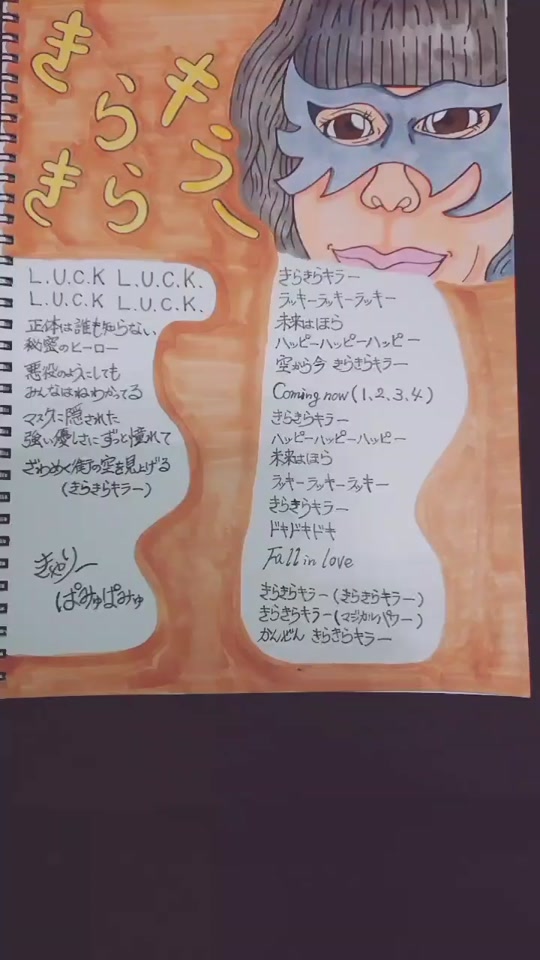 きらきらキラー
L.U.C.K L.U.C.K.
L.U.C.K L.U.C.K.
正体は誰も知らない
秘蜜のヒーロー
悪役のようにしても
みんなはねわかってる
マスクに隠された
強い優しさにずっと憧れて
ざわめく街の空を見上げる
(きらきらキラー)
きゃりー
ぱみゅぱみゅ
きらきらキラー
ラッキーラッキーラッキー
未来はほら
ハッピーハッピーハッピー
空から今 きらきらキラー
Coming now (1、2、3、4)
きらきらキラー
ハッピーハッピーハッピー
未来はほら
ラッキーラッキーラッキー
きらきらキラー
ドキドキドキ
Fall in love
きらきらキラー (きらきらキラー)
きらきらキラー (マジカルパワー)
かんぜん きらきらキラー